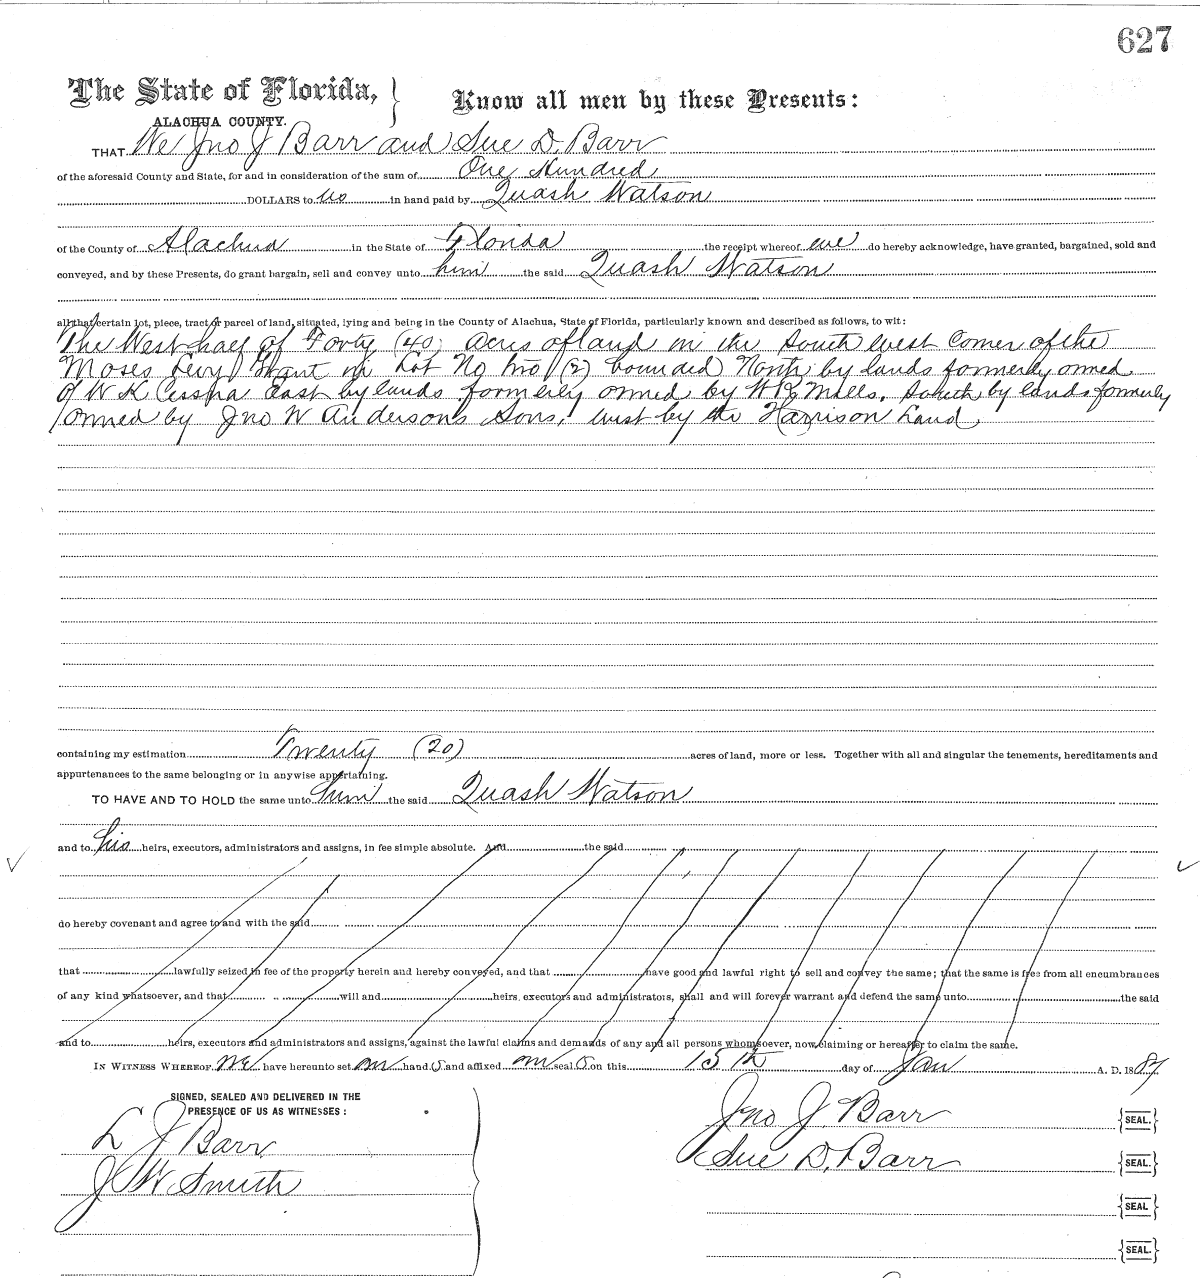 627
The State of Florida,
Know all men by these Presents:
ALACHUA COUNTY.
THAT We Jno J Barr and Sue D. Barr
of the aforesaid County and State, for and in consideration of the sum of One Hundred
DOLLARS to us in hand paid by Quash Watson
of the County of Alachua in the State of Florida the receipt whereof we do hereby acknowledge, have granted, bargained, sold and
conveyed, and by these Presents, do grant bargain, sell and convey unto him the said Quash Watson
all that certain lot, piece, tract or parcel of land, situated, lying and being in the County of Alachua, State of Florida, particularly known and described as follows, to wit:
The West half of Forty (40) acres of land in the South west Corner of the
Moses Levy Grant in Lot No two (2) bounded North by lands formerly owned
of W K Cessna East by lands formerly owned by W R Mills. South by lands formerly
owned by Jno W Andersons Sons, west by the Harrison Land
containing my estimation Twenty (20) acres of land, more or less. Together with all and singular the tenements, hereditaments and
appurtenances to the same belonging or in anywise appertaining.
TO HAVE AND TO HOLD the same unto him the said Quash Watson
and to his heirs, executors, administrators and assigns, in fee simple absolute. And the said
do hereby covenant and agree to and with the said
that lawfully seized in fee of the property herein and hereby conveyed, and that have good and lawful right to sell and convey the same; that the same is free from all encumbrances
of any kind whatsoever, and that will and heirs, executors and administrators, shall and will forever warrant and defend the same unto the said
and to heirs, executors and administrators and assigns, against the lawful claims and demands of any and all persons whomsoever, now claiming or hereafter to claim the same.
IN WITNESS WHEREOF We have hereunto set our hand s and affixed our seal s on this 15th day of Jan A. D. 1887
SIGNED, SEALED AND DELIVERED IN THE
PRESENCE OF US AS WITNESSES:
L J Barr
J W Smith
Jno J. Barr SEAL.
Sue D. Barr SEAL.
SEAL
SEAL.